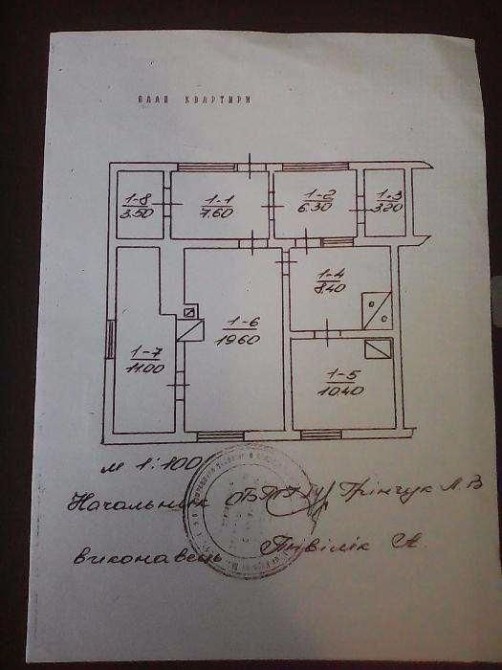 ПЛАН КВАРТИРИ
1-8
3.50
1-1
7.60
1-2
6.30
1-3
3.20
1-4
8.40
1-6
19.60
1-7
11.00
1-5
10.40
м 1:100
Начальник Грінчук Л.В
виконавець А.